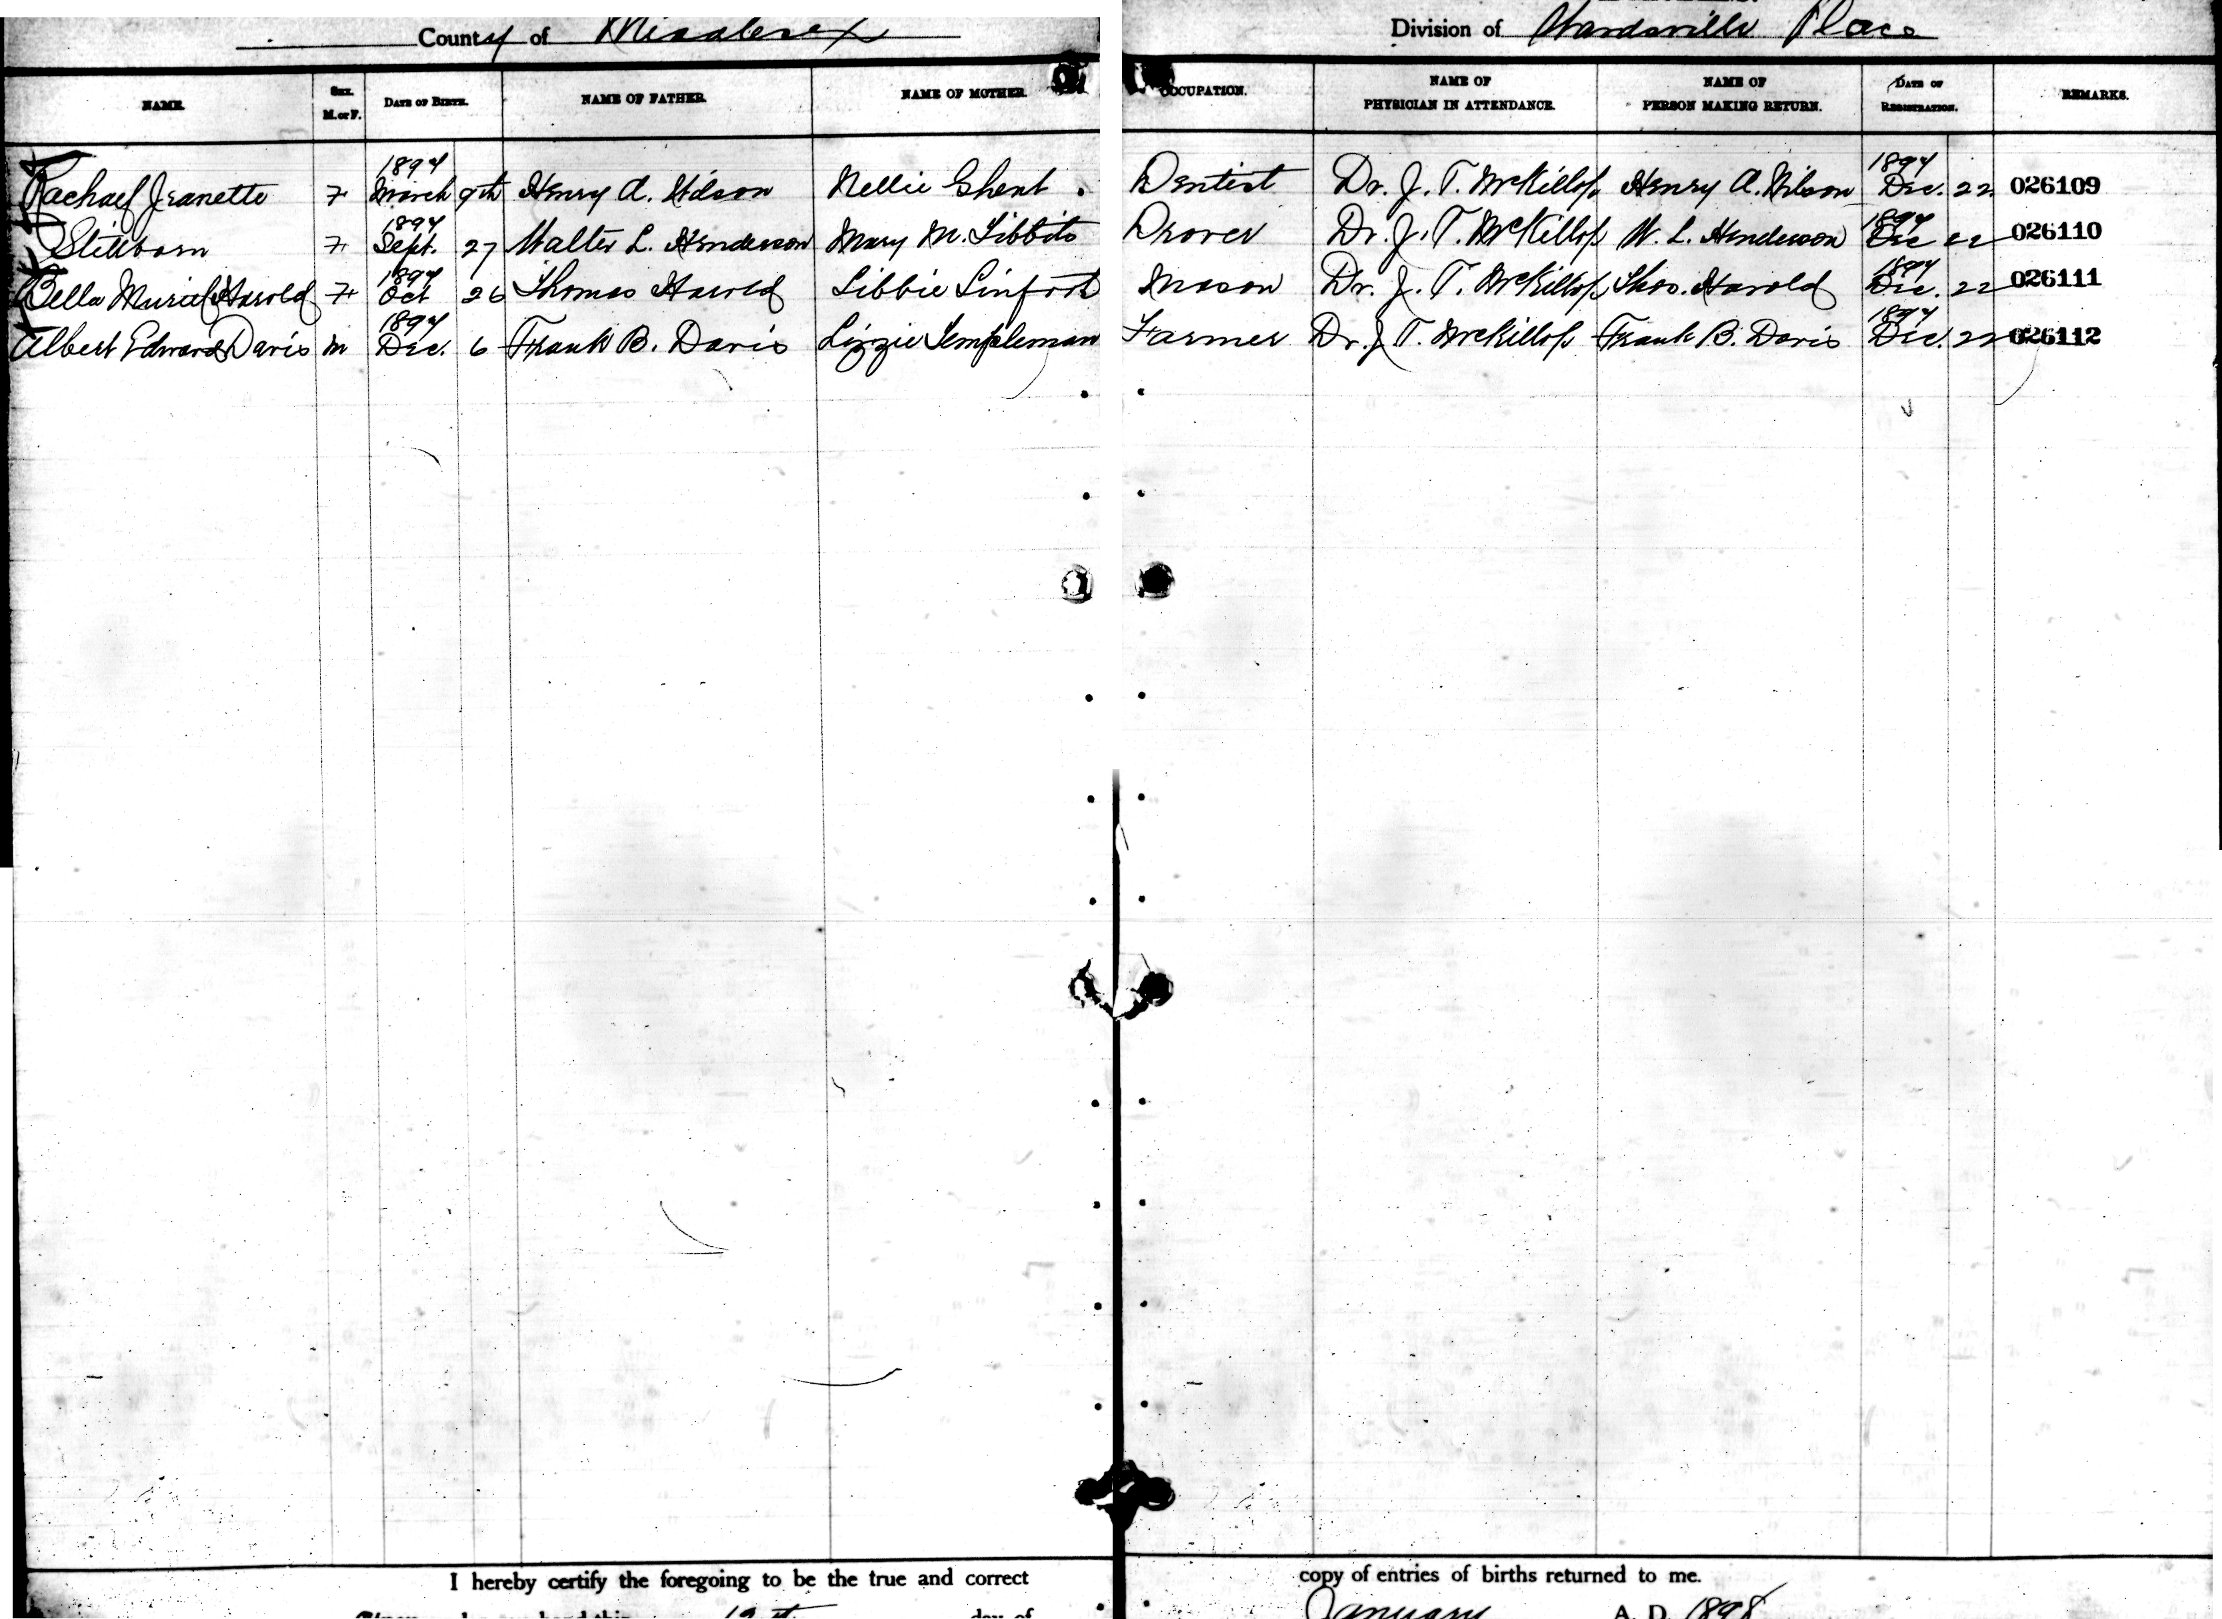 County of Middlesex
Division of Wardsville Place
NAME. SEX. M. or F. DATE OF BIRTH. NAME OF FATHER. NAME OF MOTHER. OCCUPATION. NAME OF PHYSICIAN IN ATTENDANCE. NAME OF PERSON MAKING RETURN. DATE OF REGISTRATION. REMARKS.
Rachael Jeanette F 1897 March 9th Henry A. Wilson Nellie Ghent Dentist Dr. J. T. McKillop Henry A. Wilson 1897 Dec. 22 026109
Stillborn F 1897 Sept. 27 Walter L. Henderson Mary M. Tibbits Drover Dr. J. T. McKillop W. L. Henderson 1897 Dec 22 026110
Bella Muriel Harold F 1897 Oct 26 Thomas Harold Libbie Linfoot Mason Dr. J. T. McKillop Thos. Harold 1897 Dec. 22 026111
Albert Edward Davis M 1897 Dec. 6 Frank B. Davis Lizzie Templeman Farmer Dr. J. T. McKillop Frank B. Davis 1897 Dec. 22 026112
I hereby certify the foregoing to be the true and correct copy of entries of births returned to me.
day of January A. D. 1898